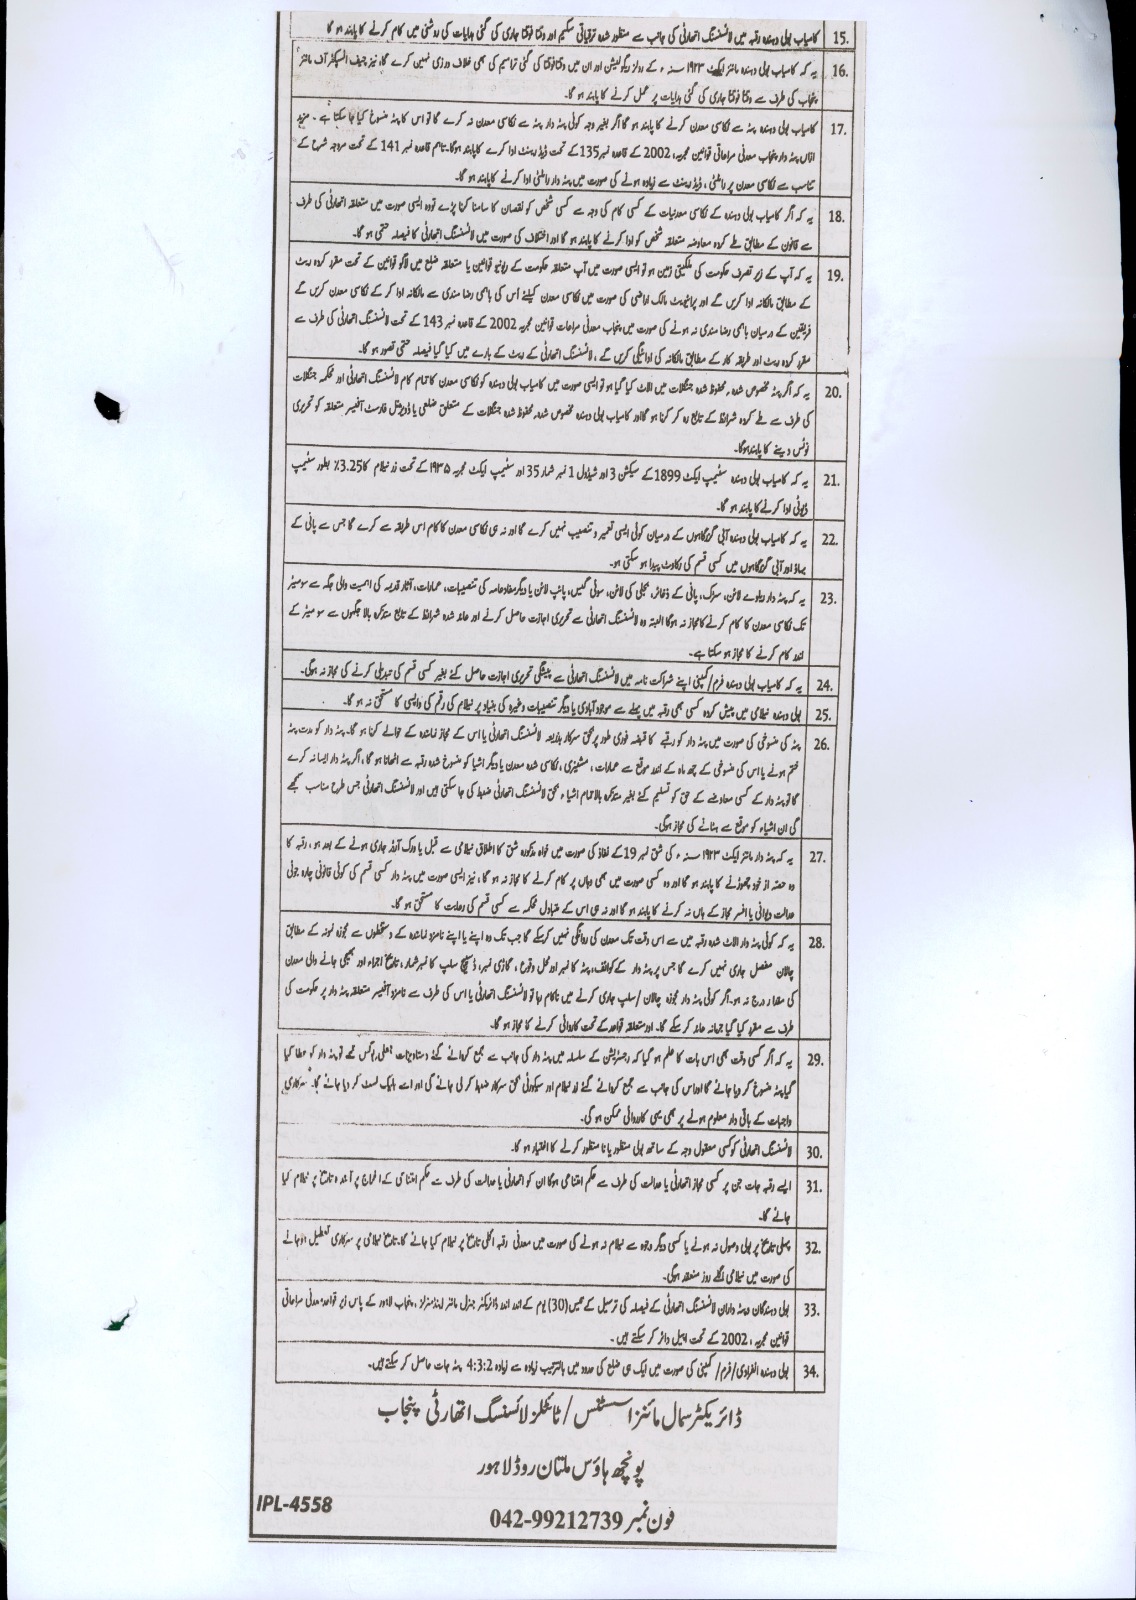 15. کامیاب بولی دہندہ رقبہ میں لائسنسنگ اتھارٹی کی جانب سے منظور شدہ ترقیاتی سکیم اور وقتاً فوقتاً جاری کی گئی ہدایات کی روشنی میں کام کرنے کا پابند ہو گا
16. یہ کہ کامیاب بولی دہندہ مائنز ایکٹ ۱۹۲۳ سنہ ء کے رولز ریگولیشن اور ان میں وقتاً فوقتاً کی گئی ترامیم کی بھی خلاف ورزی نہیں کرے گا، نیز چیف انسپکٹر آف مائنز
پنجاب کی طرف سے وقتاً فوقتاً جاری کی گئی ہدایات پر عمل کرنے کا پابند ہو گا۔
17. کامیاب بولی دہندہ پٹہ سے نکاسی معدن کرنے کا پابند ہو گا اگر بغیر وجہ کوئی پٹہ دار پٹہ سے نکاسی معدن نہ کرے گا تو اس کا پٹہ منسوخ کیا جا سکتا ہے۔ مزید
ازاں پٹہ دار پنجاب معدنی مراعاتی قوانین مجریہ، 2002 کے قاعدہ نمبر 135 کے تحت ڈیڈ رینٹ ادا کرے کا پابند ہوگا۔ تاہم قاعدہ نمبر 141 کے تحت مروجہ شرح کے
تناسب سے نکاسی معدن پر رائلٹی، ڈیڈ رینٹ سے زیادہ ہونے کی صورت میں پٹہ دار رائلٹی ادا کرنے کا پابند ہو گا۔
18. یہ کہ اگر کامیاب بولی دہندہ کے نکاسی معدنیات کے کسی کام کی وجہ سے کسی شخص کو نقصان کا سامنا کرنا پڑے تو وہ ایسی صورت میں متعلقہ اتھارٹی کی طرف
سے قانون کے مطابق طے کردہ معاوضہ متعلقہ شخص کو ادا کرنے کا پابند ہو گا اور اختلاف کی صورت میں لائسنسنگ اتھارٹی کا فیصلہ حتمی ہو گا۔
19. یہ کہ آپ کے زیر تصرف حکومت کی ملکیتی زمین ہو تو ایسی صورت میں آپ متعلقہ حکومت کے ریونیو قوانین یا متعلقہ ضلع میں لاگو قوانین کے تحت مقرر کردہ ریٹ
کے مطابق مالکانہ ادا کریں گے اور پرائیویٹ مالک اراضی کی صورت میں نکاسی معدن کیلئے اُس کی باہمی رضا مندی سے مالکانہ ادا کر کے نکاسی معدن کریں گے
فریقین کے درمیان باہمی رضا مندی نہ ہونے کی صورت میں پنجاب معدنی مراعات قوانین مجریہ 2002 کے قاعدہ نمبر 143 کے تحت لائسنسنگ اتھارٹی کی طرف سے
مقرر کردہ ریٹ اور طریقہ کار کے مطابق مالکانہ کی ادائیگی کریں گے، لائسنسنگ اتھارٹی کے ریٹ کے بارے میں کیا گیا فیصلہ حتمی تصور ہو گا۔
20. یہ کہ اگر پٹہ مخصوص شدہ۔ محفوظ شدہ جنگلات میں الاٹ کیا گیا ہو تو ایسی صورت میں کامیاب بولی دہندہ کو نکاسی معدن کا تمام کام لائسنسنگ اتھارٹی اور محکمہ جنگلات
کی طرف سے طے کردہ شرائط کے تابع رہ کر کرنا ہو گا اور کامیاب بولی دہندہ مخصوص شدہ۔ محفوظ شدہ جنگلات کے متعلق ضلعی یا ڈویژنل فارسٹ آفیسر متعلقہ کو تحریری
نوٹس دینے کا پابند ہوگا۔
21. یہ کہ کامیاب بولی دہندہ سٹیمپ ایکٹ 1899 کے سیکشن 3 اور شیڈول 1 نمبر شمار 35 اور سٹیمپ ایکٹ مجریہ ۱۹۳۵ کے تحت زر نیلام کا 3.25٪ بطور سٹیمپ
ڈیوٹی ادا کرنے کا پابند ہو گا۔
22. یہ کہ کامیاب بولی دہندہ آبی گزرگاہوں کے درمیان کوئی ایسی تعمیر و تنصیب نہیں کرے گا اور نہ ہی نکاسی معدن کا کام اس طریقہ سے کرے گا جس سے پانی کے
بہاؤ اور آبی گزرگاہوں میں کسی قسم کی رکاوٹ پیدا ہو سکتی ہو۔
23. یہ کہ پٹہ دار ریلوے لائن، سڑک، پانی کے ذخائر، بجلی کی لائن، سوئی گیس، پائپ لائن یا دیگر مفاد عامہ کی تنصیبات، عمارات، آثار قدیمہ کی اہمیت والی جگہ سے سو میٹر
تک نکاسی معدن کا کام کرنے کا مجاز نہ ہوگا البتہ وہ لائسنسنگ اتھارٹی سے تحریری اجازت حاصل کرنے اور عائد شدہ شرائط کے تابع متذکرہ بالا جگہوں سے سو میٹر کے
اندر کام کرنے کا مجاز ہو سکتا ہے۔
24. یہ کہ کامیاب بولی دہندہ فرم/کمپنی اپنے شراکت نامہ میں لائسنسنگ اتھارٹی سے پیشگی تحریری اجازت حاصل کئے بغیر کسی قسم کی تبدیلی کرنے کی مجاز نہ ہوگی۔
25. بولی دہندہ نیلامی میں پیش کردہ کسی بھی رقبہ میں پہلے سے موجود آبادی یا دیگر تنصیبات وغیرہ کی بنیاد پر نیلام کی رقم کی واپسی کا مستحق نہ ہو گا۔
26. پٹہ کی منسوخی کی صورت میں پٹہ دار کو رقبے کا قبضہ فوری طور پر بحق سرکار بذریعہ لائسنسنگ اتھارٹی یا اس کے مجاز نمائندہ کے حوالے کرنا ہو گا۔ پٹہ دار کو مدت پٹہ
ختم ہونے یا اس کی منسوخی کے چھ ماہ کے اندر موقع سے عمارات، مشینری، نکاسی شدہ معدن یا دیگر اشیا کو منسوخ شدہ رقبہ سے اٹھانا ہو گا، اگر پٹہ دار ایسا نہ کرے
گا تو پٹہ دار کے کسی معاوضے کے حق کو تسلیم کئے بغیر متذکرہ بالا تمام اشیاء بحق لائسنسنگ اتھارٹی ضبط کی جا سکتی ہیں اور لائسنسنگ اتھارٹی جس طرح مناسب سمجھے
گی ان اشیاء کو موقع سے ہٹانے کی مجاز ہوگی۔
27. یہ کہ پٹہ دار مائنز ایکٹ ۱۹۲۳ سنہ ء کی شق نمبر 19 کے نفاذ کی صورت میں خواہ مذکورہ شق کا اطلاق نیلامی سے قبل یا ورک آرڈر جاری ہونے کے بعد ہو، رقبہ کا
وہ حصہ از خود چھوڑنے کا پابند ہو گا اور وہ کسی صورت میں بھی وہاں پر کام کرنے کا مجاز نہ ہو گا، نیز ایسی صورت میں پٹہ دار کسی قسم کی کوئی قانونی چارہ جوئی
عدالت دیوانی یا افسر مجاز کے ہاں نہ کرنے کا پابند ہو گا اور نہ ہی اس کے متبادل محکمہ سے کسی قسم کی رعایت کا مستحق ہو گا۔
28. یہ کہ کوئی پٹہ دار الاٹ شدہ رقبہ میں سے اس وقت تک معدن کی روانگی نہیں کر سکے گا جب تک وہ اپنے یا اپنے نامزد نمائندہ کے دستخطوں سے مجوزہ نمونہ کے مطابق
چالان مفصل جاری نہیں کرے گا جس پر پٹہ دار کے کوائف، پٹہ کا نمبر اور محل وقوع، گاڑی نمبر، ڈسپیچ سلپ کا نمبر شمار، تاریخ اجراء اور بھیجی جانے والی معدن
کی مقدار درج نہ ہو۔ اگر کوئی پٹہ دار مجوزہ چالان/سلپ جاری کرنے میں ناکام رہا تو لائسنسنگ اتھارٹی یا اس کی طرف سے نامزد آفیسر متعلقہ پٹہ دار پر حکومت کی
طرف سے مقرر کیا گیا جرمانہ عائد کر سکے گا۔ اور متعلقہ قواعد کے تحت کاروائی کرنے کا مجاز ہو گا۔
29. یہ کہ اگر کسی وقت بھی اس بات کا علم ہو گیا کہ رجسٹریشن کے سلسلہ میں پٹہ دار کی جانب سے جمع کروائے گئے دستاویزات جعلی، بوگس تھے تو پٹہ دار کو عطا کیا
گیا پٹہ منسوخ کر دیا جائے گا اور اس کی جانب سے جمع کروائے گئے زر نیلام اور سیکورٹی بحق سرکار ضبط کر لی جائے گی اور اسے بلیک لسٹ کر دیا جائے گا۔ سرکاری
واجبات کے باقی دار معلوم ہونے پر بھی یہی کارروائی ممکن ہو گی۔
30. لائسنسنگ اتھارٹی کو کسی معقول وجہ کے ساتھ بولی منظور یا نا منظور کرنے کا اختیار ہو گا۔
31. ایسے رقبہ جات جن پر کسی مجاز اتھارٹی یا عدالت کی طرف سے حکم امتناعی ہوگا ان کو اتھارٹی یا عدالت کی طرف سے حکم امتناعی کے اخراج پر آئندہ تاریخ پر نیلام کیا
جائے گا۔
32. پہلی تاریخ پر بولی وصول نہ ہونے یا کسی دیگر وجوہ سے نیلام نہ ہونے کی صورت میں معدنی رقبہ اگلی تاریخ پر نیلام کیا جائے گا۔ تاریخ نیلامی پر سرکاری تعطیل ہو جانے
کی صورت میں نیلامی اگلے روز منعقد ہوگی۔
33. بولی دہندگان و پٹہ داران لائسنسنگ اتھارٹی کے فیصلہ کی ترسیل کے تیس (30) یوم کے اندر اندر ڈائریکٹر جنرل مائنز اینڈ منرلز، پنجاب لاہور کے پاس زیر قواعد معدنی مراعاتی
قوانین مجریہ، 2002 کے تحت اپیل دائر کر سکتے ہیں۔
34. بولی دہندہ انفرادی/فرم/کمپنی کی صورت میں ایک ہی ضلع کی حدود میں بالترتیب زیادہ سے زیادہ 4:3:2 پٹہ جات حاصل کر سکتے ہیں۔
ڈائریکٹر سمال مائنز اسسٹنس/ٹائٹلز لائسنسنگ اتھارٹی پنجاب
پونچھ ہاؤس ملتان روڈ لاہور
فون نمبر 042-99212739
IPL-4558